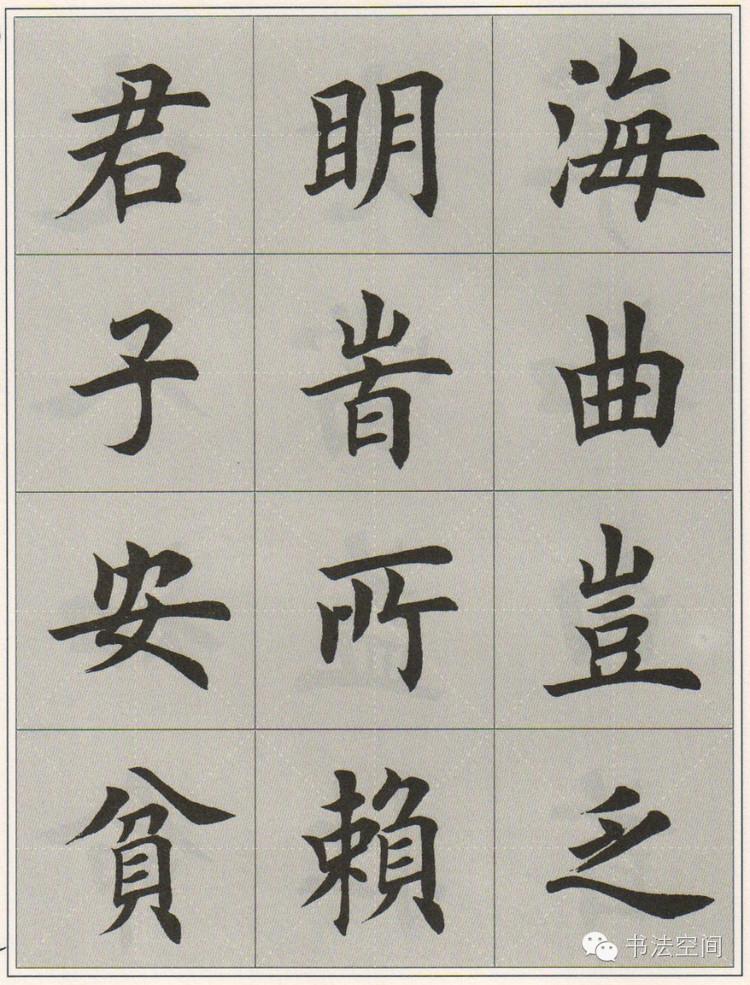 海曲豈乏
明旹所賴
君子安貧
书法空间